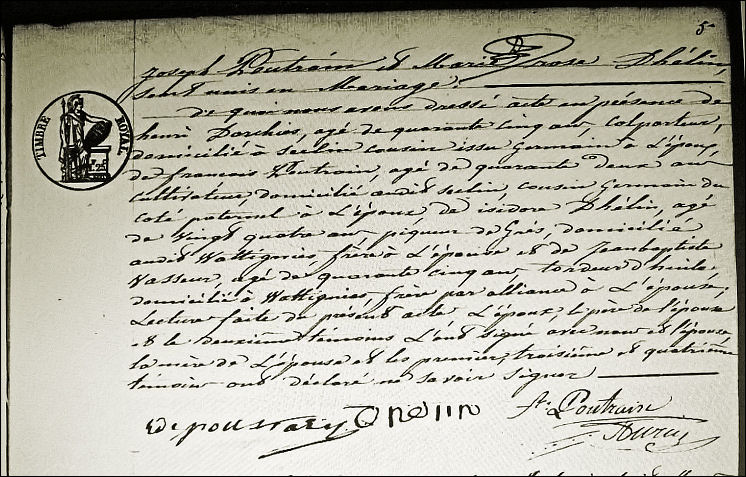 5e
joseph Poutrain et Marie Rose Dhélin,
sont unis en Mariage.
De quoi nous avons dressé acte en présence de
henri Dorchies, agé de quarante cinq ans, colporteur,
domicilié à seclin cousin issu Germain à L'époux,
de francois Poutrain, agé de quarante deux ans
cultivateur, domicilié audit seclin, cousin Germain du
coté paternel à L'époux, de isidore Dhélin, agé
de vingt quatre ans piqueur de Grés, domicilié
audit Wattignies, frère à L'épouse et de Jeanbaptiste
Vasseur, agé de quarante cinq ans, tordeur d'huile,
domicilié à Wattignies, frère par alliance à L'épouse,
Lecture faite du présent acte L'époux, le père de l'épouse
et le deuxième témoins L'ont signé avec nous et l'épouse
la mère de L'épouse et les premier, troisième et quatrième
temoins ont déclaré ne savoir signer
TIMBRE ROYAL
fs. Poutrain